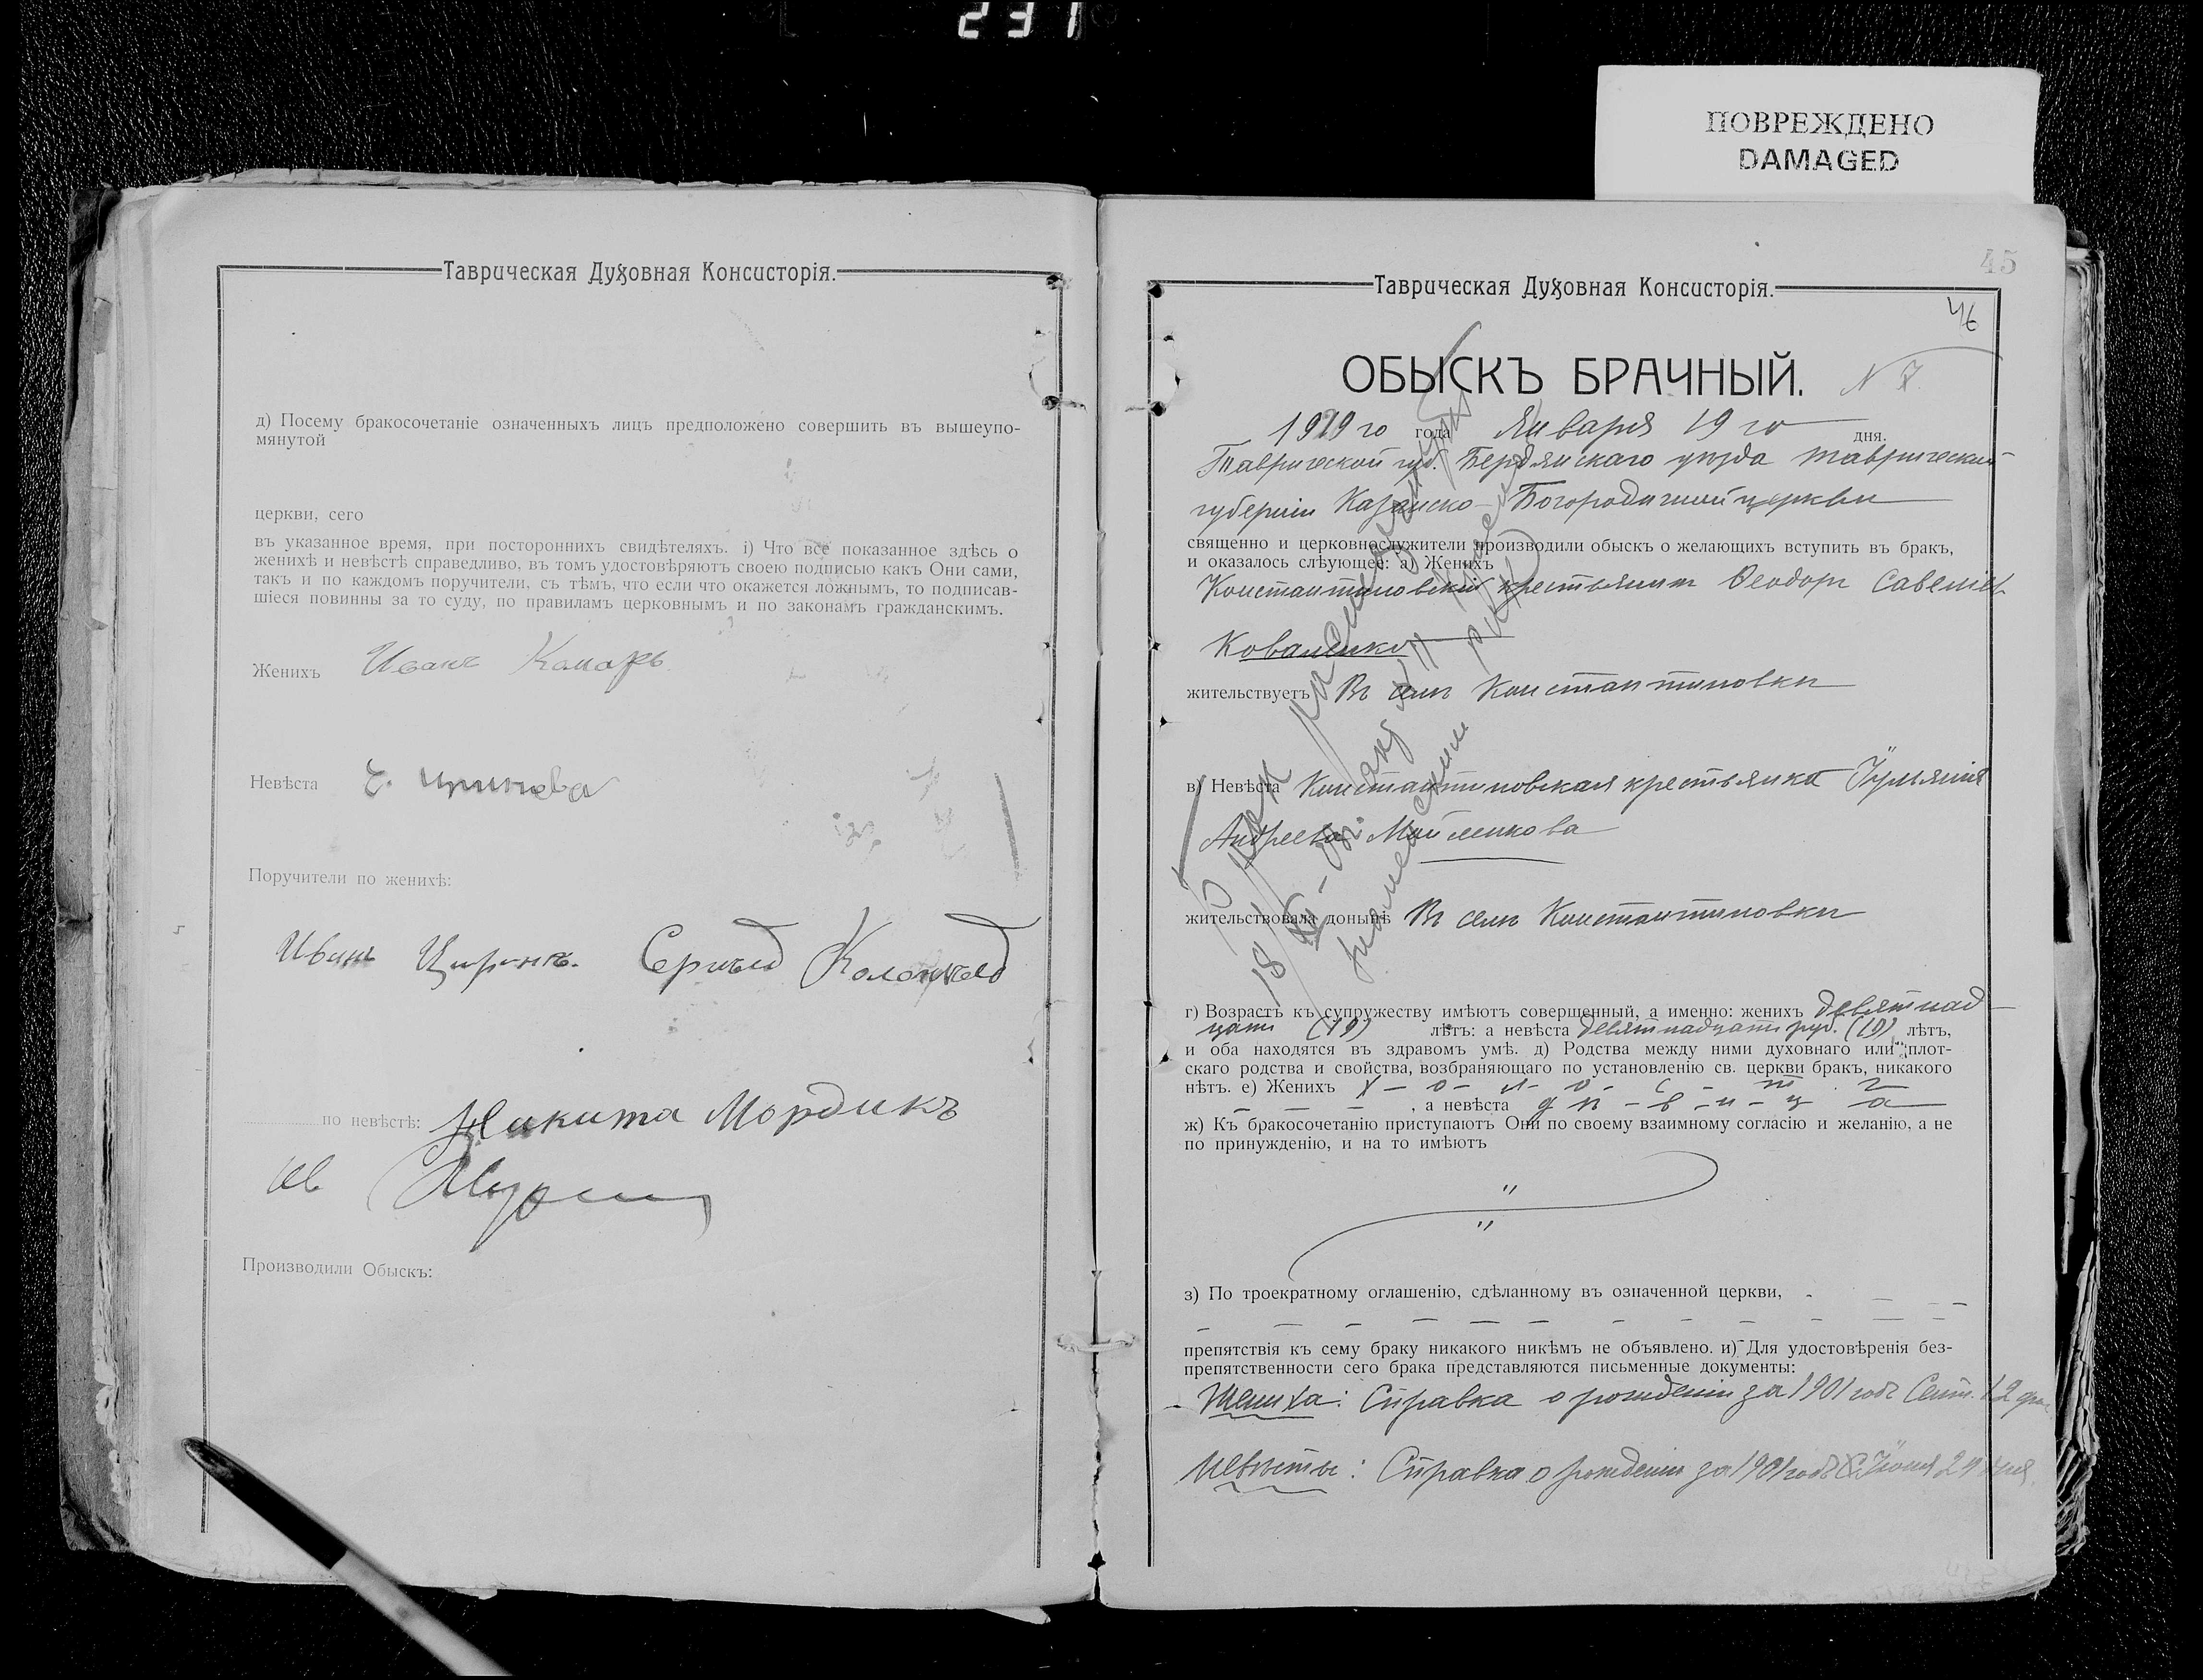 231
ПОВРЕЖДЕНО
DAMAGED
Таврическая Духовная Консисторія.
д) Посему бракосочетаніе означенныхъ лицъ предположено совершить въ вышеупо-
мянутой
церкви, сего
въ указанное время, при постороннихъ свидѣтеляхъ. і) Что все показанное здѣсь о
женихѣ и невѣстѣ справедливо, въ томъ удостовѣряютъ своею подписью какъ Они сами,
такъ и по каждомъ поручители, съ тѣмъ, что если что окажется ложнымъ, то подписав-
шіеся повинны за то суду, по правиламъ церковнымъ и по законамъ гражданскимъ.
Женихъ Иванъ Комарь
Невѣста
Поручители по женихѣ:
Иванъ
по невѣстѣ: Никита Мордикъ
Ив
Производили Обыскъ:
45
Таврическая Духовная Консисторія.
46
ОБЫСКЪ БРАЧНЫЙ. N 7.
1919 го года Января 19 го дня.
Таврической губ. Бердянскаго уѣзда таврической
губерніи Казанско-Богородичной церкви
священно и церковнослужители производили обыскъ о желающихъ вступить въ бракъ,
и оказалось слѣующее: а) Женихъ
Константиновскій крестьянинъ Ѳеодоръ Савеліев
Коваленко
жительствуетъ Въ селѣ Константиновкѣ
в) Невѣста Константиновская крестьянка Іуліанія
Андреева
жительствовала донынѣ Въ селѣ Константиновкѣ
г) Возрастъ къ супружеству имѣютъ совершенный, а именно: женихъ девятнад
цати (19) лѣтъ: а невѣста девятнадцати (19) лѣтъ,
и оба находятся въ здравомъ умѣ. д) Родства между ними духовнаго или плот-
скаго родства и свойства, возбраняющаго по установленію св. церкви бракъ, никакого
нѣтъ. е) Женихъ х - о - л - о - с - т ъ
, а невѣста д ѣ - в - и - ц а
ж) Къ бракосочетанію приступаютъ Они по своему взаимному согласію и желанію, а не
по принужденію, и на то имѣютъ
"
"
з) По троекратному оглашенію, сдѣланному въ означенной церкви,
препятствія къ сему браку никакого никѣмъ не объявлено. и) Для удостовѣренія без-
препятственности сего брака представляются письменные документы:
Жениха: Справка о рожденіи за 1901 годъ Сент. 12 дня
Невѣсты: Справка о рожденіи за 1901 годъ Іюня 29 дня.